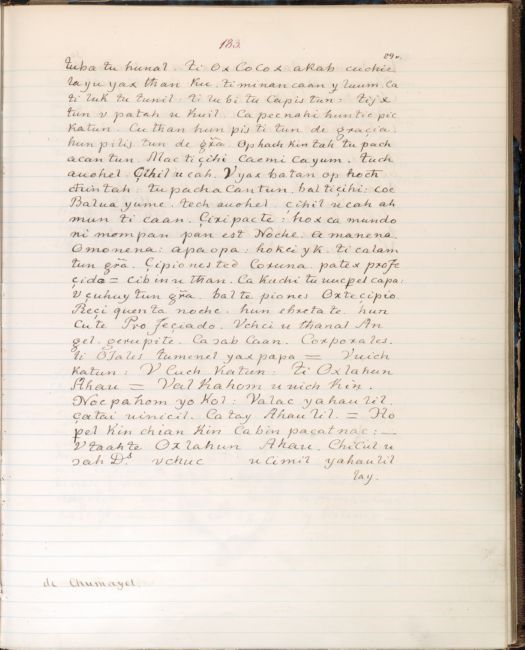 183.
29v.
tuba tu hunal. ti Ox Cocox akab cuchie
layu yax than Ku. ti minan caan y luum. Ca
ti luk tu tunil: ti lubi tu Capis tun: tijx
tun v patah u Kuil. Ca pecnahi huntic pic
Katun. Cu than hun pis ti tun de gracia
hun pilis tun de grã. Ophach Kin tah tu pach
acantun. Mac ti çihi Caemi cayum. tuch
auohel. Çihil u cah. V yax batan op hoch
tuntah: tu pacha Cantun. bal ti çihi: coc
Balua yume. tech auohel. çihil u cah ah
mun ti caan. Çiripacte: hox ca mundo
ni mompan pan est Noche. amanena.
Omonena: apaopa: hokci yk. ti calam
tun grã. Çipiones ted Coruna. patex profe
çido = cibin u than. Ca Kuchi tu uucpel capa:
v çuhuy tun grã. bal te piones Ox te çipio
Reçi quenta noche. hun ebretate. hun
Cute Profeçiado. Vchci u thanal An
gel. çerupite. Ca sab Caan. Corporales.
ti Otales tumenel yax papa = Vuich
Katun: V Cuch Katun: ti Oxlahun
Ahau = Valkahom u uich Kin.
Noc pahom yo Kol: Valac yahaulil.
çatai uinicil. Ca tay Ahaulil. = Ho
pel Kin chian Kin Ca bin paçatnac: —
Vtaakte Oxlahun Ahau. Chicul u
sah D.s vchuc u cimil yahaulil
lay.
de Chumayel.